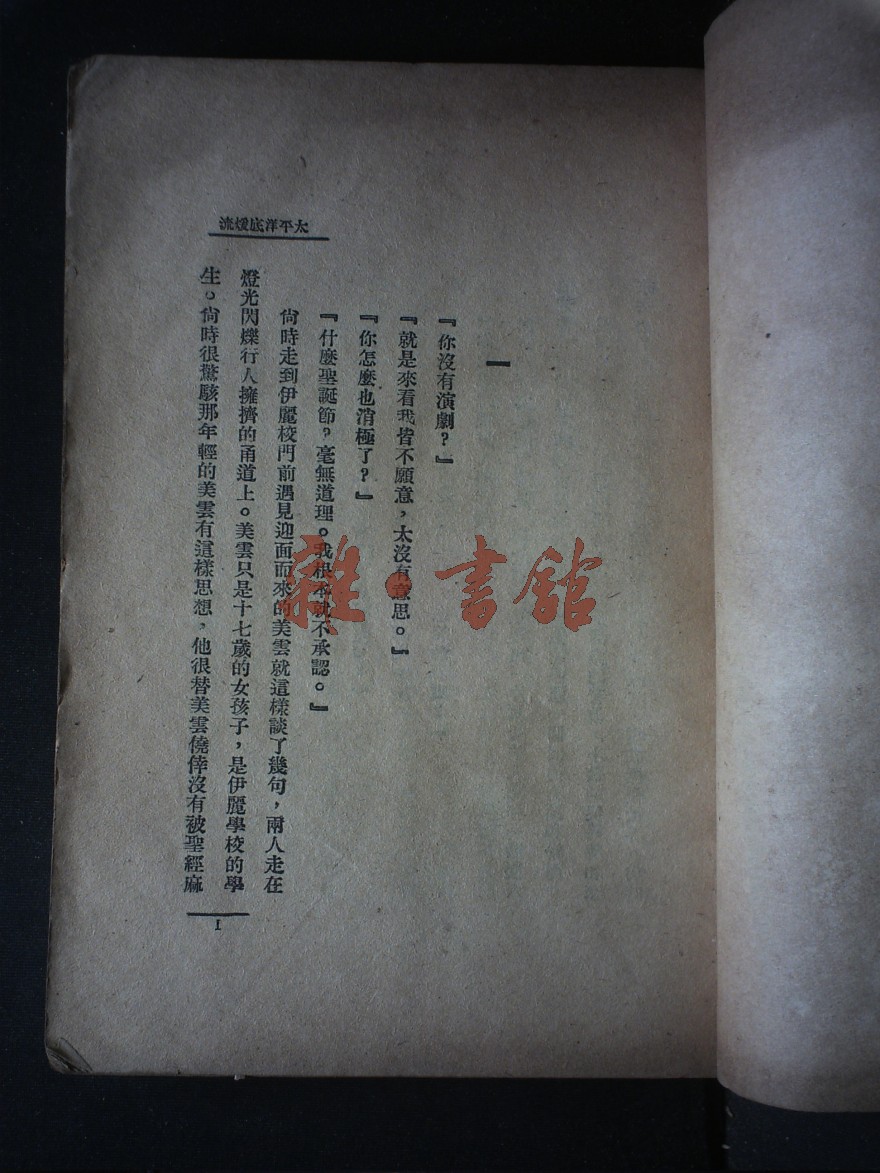 太平洋底煖流
一
『你沒有演劇？』
『就是來看我皆不願意，太沒有意思。』
『你怎麼也消極了？』
『什麼聖誕節？毫無道理。我根本就不承認。』
尙時走到伊麗校門前遇見迎面而來的美雲就這樣談了幾句，兩人走在
燈光閃爍行人擁擠的甬道上。美雲只是十七歲的女孩子，是伊麗學校的學
生。尙時很驚駭那年輕的美雲有這樣思想，他很替美雲僥倖沒有被聖經麻
1
雜·書館